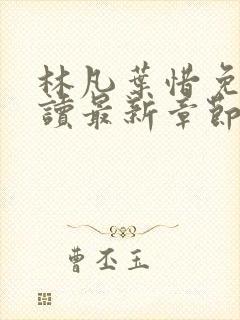 林凡葉惜免
讀最新章節
曹丕玉